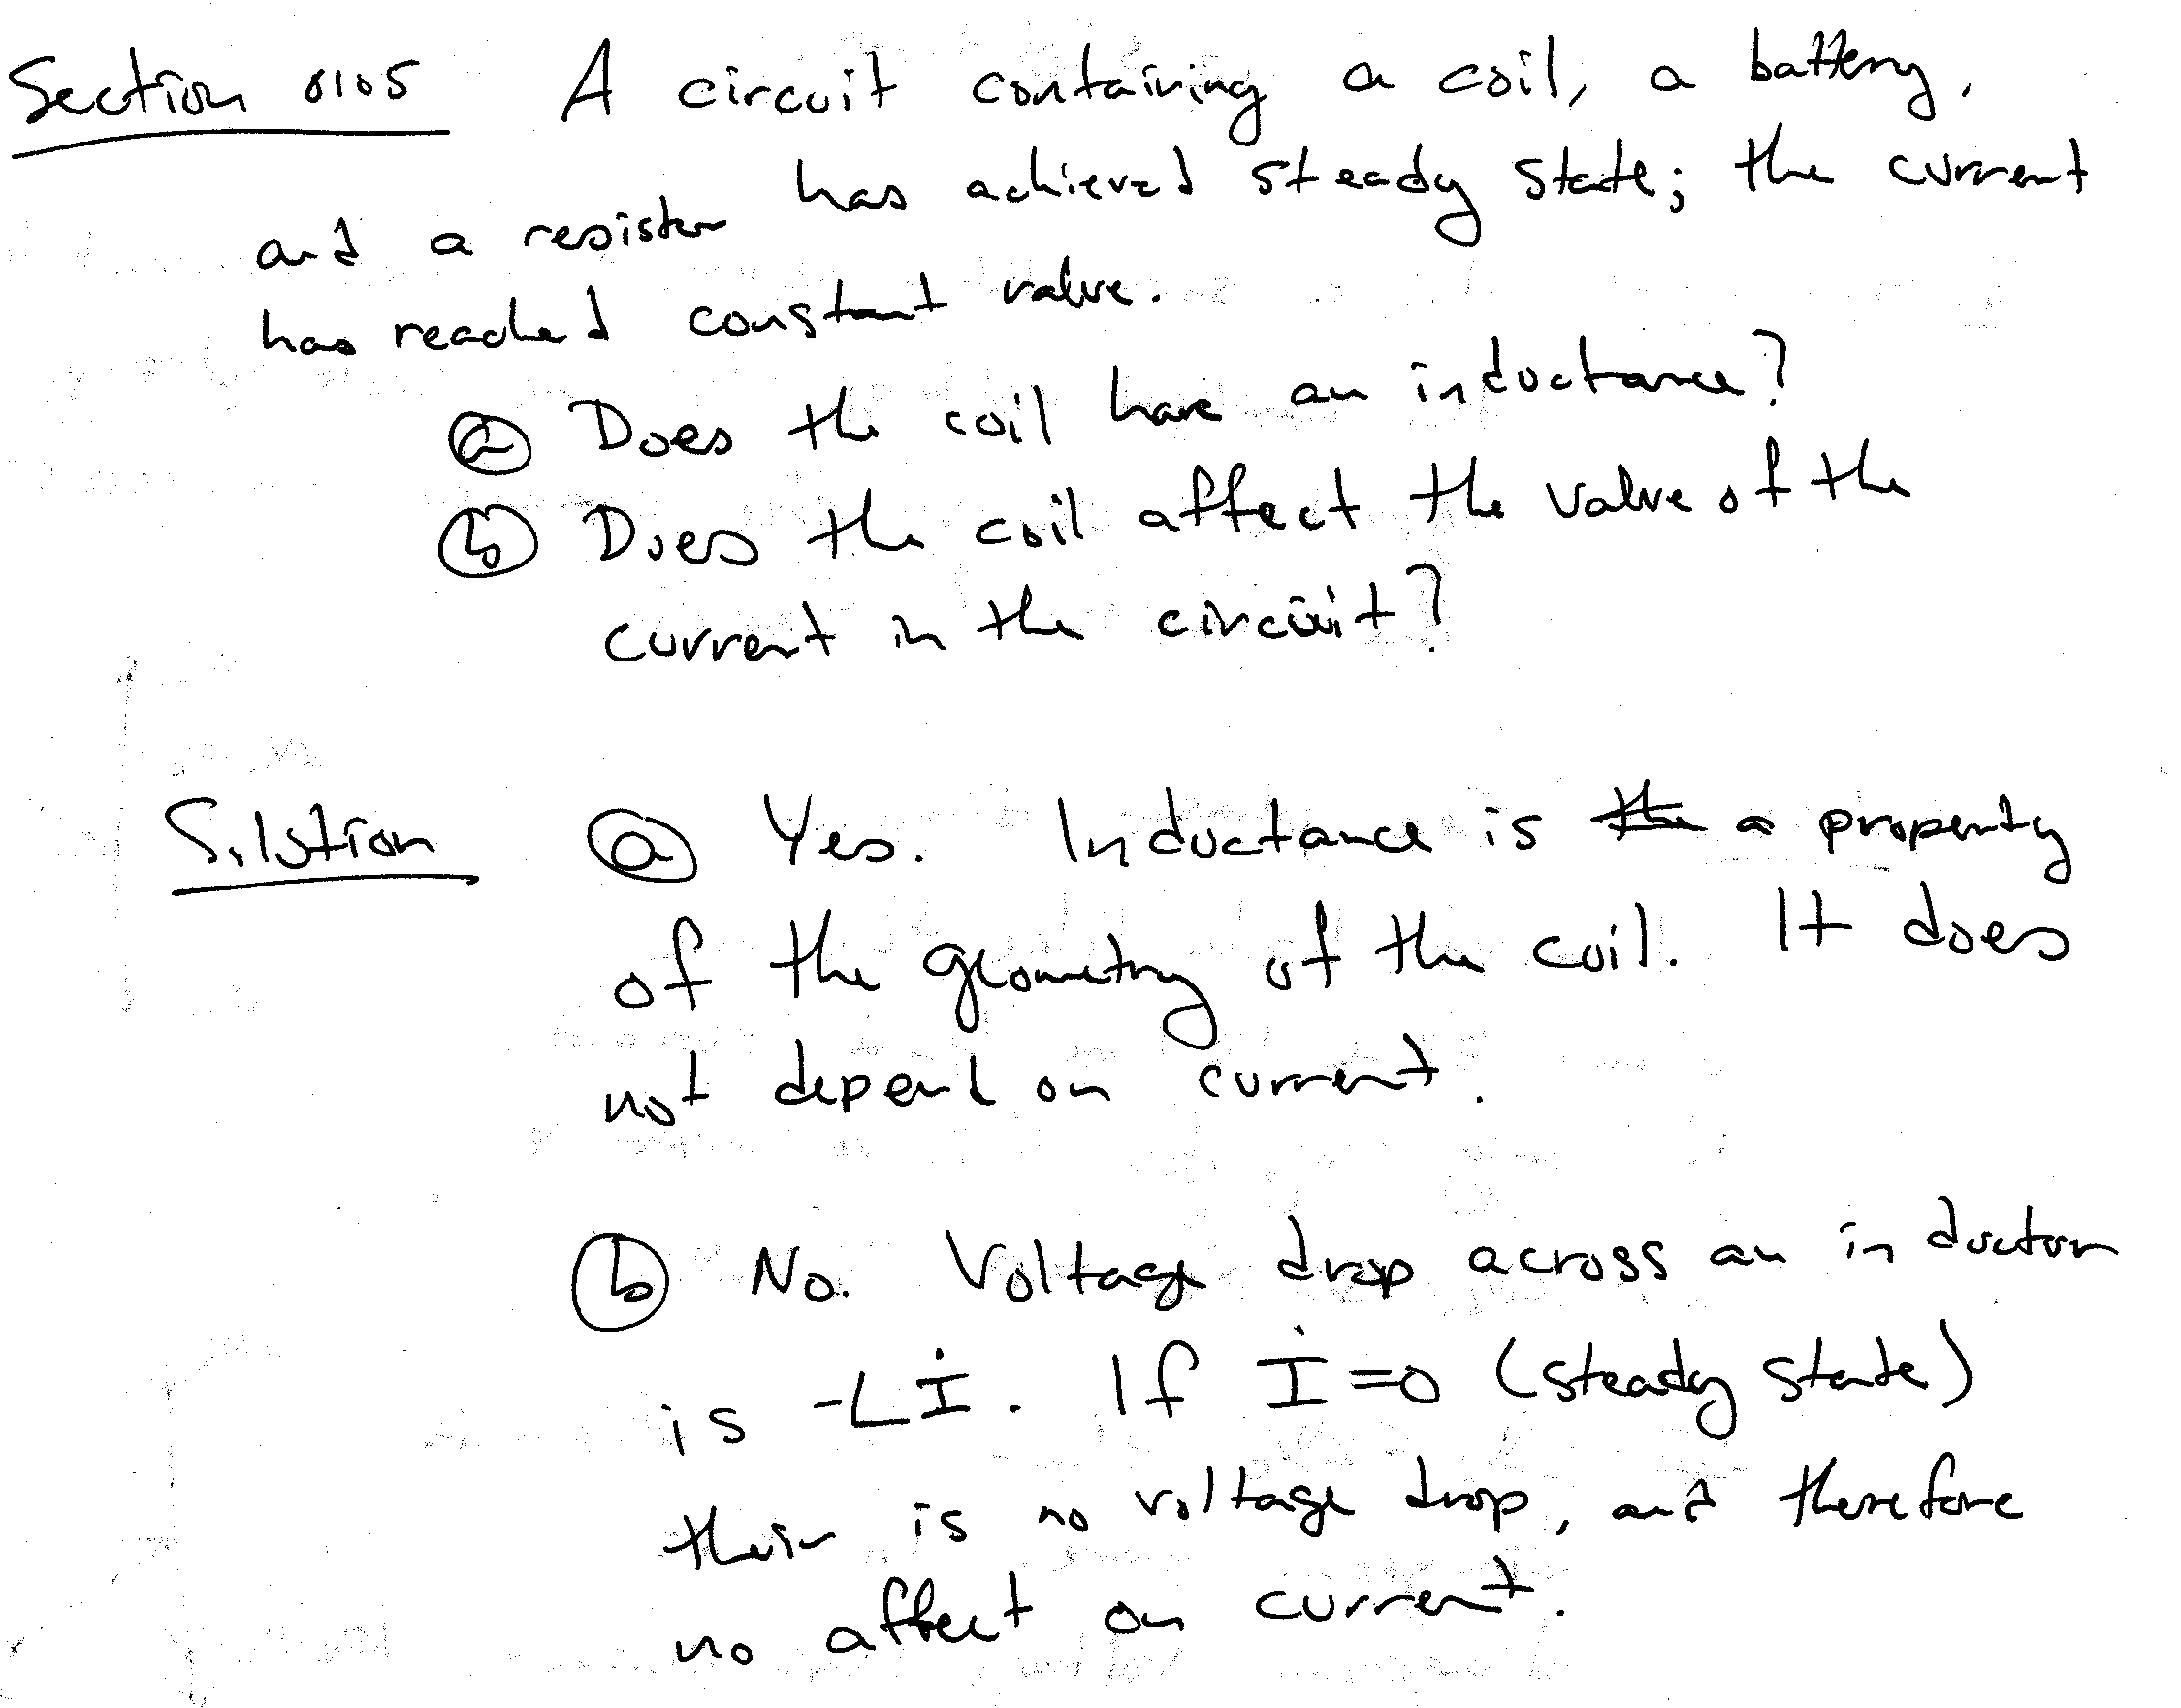 Section 0105 A circuit containing a coil, a battery,
and a resistor has achieved steady state; the current
has reached constant value.
(a) Does the coil have an inductance?
(b) Does the coil affect the value of the
current in the circuit?
Solution (a) Yes. Inductance is the a property
of the geometry of the coil. It does
not depend on current.
(b) No. Voltage drop across an inductor
is -Lİ. If İ=0 (steady state)
their is no voltage drop, and therefore
no affect on current.